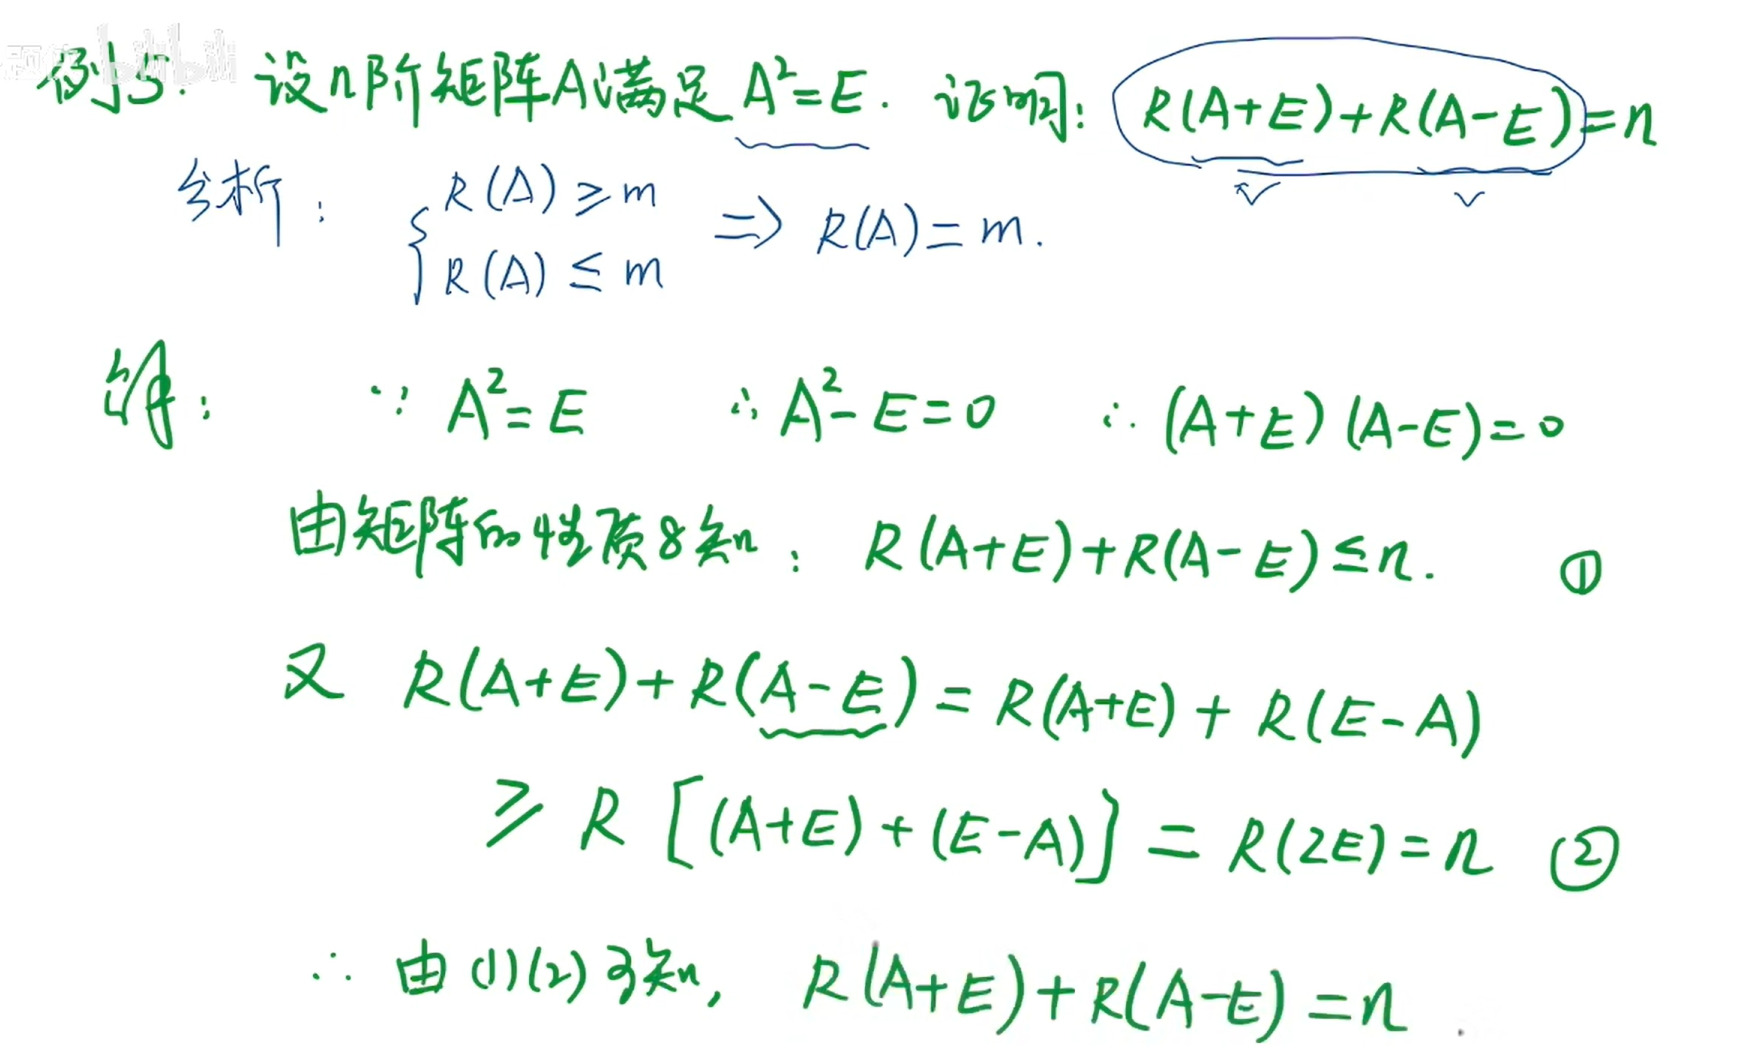 例5. 设n阶矩阵A满足 A²=E. 证明: R(A+E)+R(A-E)=n
分析: { R(A) ≥ m
R(A) ≤ m ⇒ R(A)=m.
解: ∵ A²=E ∴ A²-E=0 ∴ (A+E)(A-E)=0
由矩阵的性质8知: R(A+E)+R(A-E)≤n. ①
又 R(A+E)+R(A-E)=R(A+E)+R(E-A)
≥ R[(A+E)+(E-A)]=R(2E)=n ②
∴ 由(1)(2)可知, R(A+E)+R(A-E)=n.